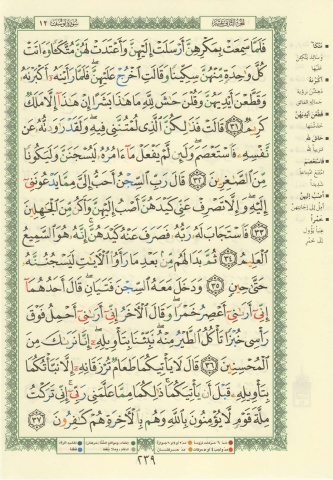 الجزء الثاني عشر
سورة يوسف ١٢
فَلَمَّا سَمِعَتْ بِمَكْرِهِنَّ أَرْسَلَتْ إِلَيْهِنَّ وَأَعْتَدَتْ لَهُنَّ مُتَّكَـًٔا وَءَاتَتْ
كُلَّ وَٰحِدَةٍ مِّنْهُنَّ سِكِّينًا وَقَالَتِ ٱخْرُجْ عَلَيْهِنَّ ۖ فَلَمَّا رَأَيْنَهُۥٓ أَكْبَرْنَهُۥ
وَقَطَّعْنَ أَيْدِيَهُنَّ وَقُلْنَ حَٰشَ لِلَّهِ مَا هَٰذَا بَشَرًا إِنْ هَٰذَآ إِلَّا مَلَكٌ
كَرِيمٌ ٣١ قَالَتْ فَذَٰلِكُنَّ ٱلَّذِى لُمْتُنَّنِى فِيهِ ۖ وَلَقَدْ رَٰوَدتُّهُۥ عَن
نَّفْسِهِۦ فَٱسْتَعْصَمَ ۖ وَلَئِن لَّمْ يَفْعَلْ مَآ ءَامُرُهُۥ لَيُسْجَنَنَّ وَلَيَكُونًا
مِّنَ ٱلصَّٰغِرِينَ ٣٢ قَالَ رَبِّ ٱلسِّجْنُ أَحَبُّ إِلَىَّ مِمَّا يَدْعُونَنِىٓ
إِلَيْهِ ۖ وَإِلَّا تَصْرِفْ عَنِّى كَيْدَهُنَّ أَصْبُ إِلَيْهِنَّ وَأَكُن مِّنَ ٱلْجَٰهِلِينَ
٣٣ فَٱسْتَجَابَ لَهُۥ رَبُّهُۥ فَصَرَفَ عَنْهُ كَيْدَهُنَّ ۚ إِنَّهُۥ هُوَ ٱلسَّمِيعُ
ٱلْعَلِيمُ ٣٤ ثُمَّ بَدَا لَهُم مِّنۢ بَعْدِ مَا رَأَوُا۟ ٱلْـَٔايَٰتِ لَيَسْجُنُنَّهُۥ
حَتَّىٰ حِينٍ ٣٥ وَدَخَلَ مَعَهُ ٱلسِّجْنَ فَتَيَانِ ۖ قَالَ أَحَدُهُمَآ
إِنِّىٓ أَرَىٰنِىٓ أَعْصِرُ خَمْرًا ۖ وَقَالَ ٱلْـَٔاخَرُ إِنِّىٓ أَرَىٰنِىٓ أَحْمِلُ فَوْقَ
رَأْسِى خُبْزًا تَأْكُلُ ٱلطَّيْرُ مِنْهُ ۖ نَبِّئْنَا بِتَأْوِيلِهِۦٓ ۖ إِنَّا نَرَىٰكَ مِنَ
ٱلْمُحْسِنِينَ ٣٦ قَالَ لَا يَأْتِيكُمَا طَعَامٌ تُرْزَقَانِهِۦٓ إِلَّا نَبَّأْتُكُمَا
بِتَأْوِيلِهِۦ قَبْلَ أَن يَأْتِيَكُمَا ۚ ذَٰلِكُمَا مِمَّا عَلَّمَنِى رَبِّىٓ ۚ إِنِّى تَرَكْتُ
مِلَّةَ قَوْمٍ لَّا يُؤْمِنُونَ بِٱللَّهِ وَهُم بِٱلْـَٔاخِرَةِ هُمْ كَٰفِرُونَ ٣٧
مُتَّكَـًٔا
أَكْبَرْنَهُ
قَطَّعْنَ أَيْدِيَهُنَّ
فَٱسْتَعْصَمَ
أَصْبُ إِلَيْهِنَّ
خَمْرًا
٢٣٩